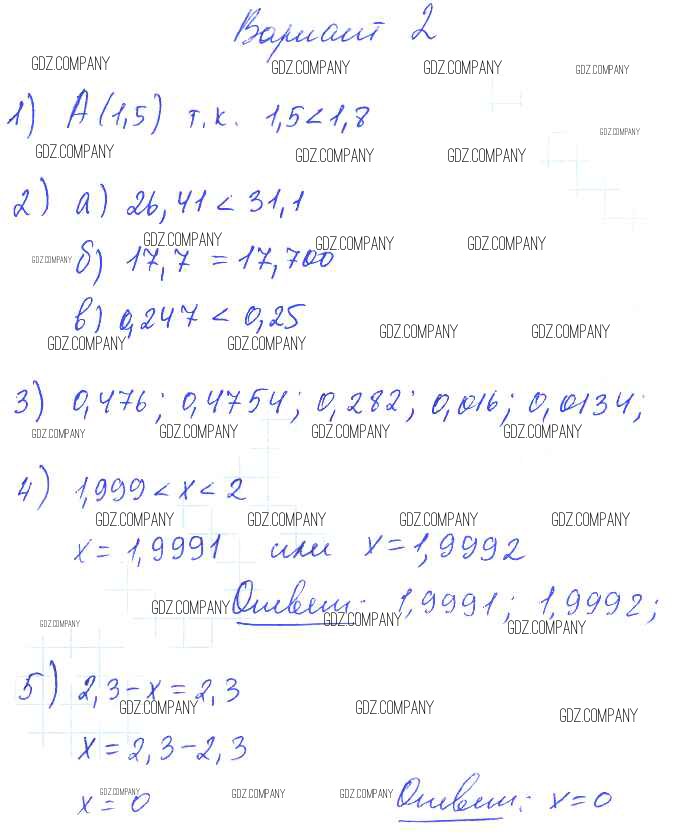 Вариант 2
GDZ.COMPANY GDZ.COMPANY GDZ.COMPANY GDZ.COMPANY
1) А(1,5) т.к. 1,5<1,8
GDZ.COMPANY
GDZ.COMPANY GDZ.COMPANY GDZ.COMPANY
2) а) 26,41 < 31,1
GDZ.COMPANY GDZ.COMPANY GDZ.COMPANY
GDZ.COMPANY б) 17,7 = 17,700
в) 0,247 < 0,25
GDZ.COMPANY GDZ.COMPANY GDZ.COMPANY GDZ.COMPANY
3) 0,476; 0,4754; 0,282; 0,016; 0,0134;
GDZ.COMPANY GDZ.COMPANY GDZ.COMPANY GDZ.COMPANY
4) 1,999 < x < 2
GDZ.COMPANY GDZ.COMPANY GDZ.COMPANY GDZ.COMPANY
x = 1,9991 или x = 1,9992
GDZ.COMPANY Ответ: 1,9991; 1,9992;
GDZ.COMPANY GDZ.COMPANY GDZ.COMPANY
5) 2,3 - x = 2,3
GDZ.COMPANY GDZ.COMPANY GDZ.COMPANY
x = 2,3 - 2,3
GDZ.COMPANY GDZ.COMPANY GDZ.COMPANY
x = 0 Ответ: x = 0